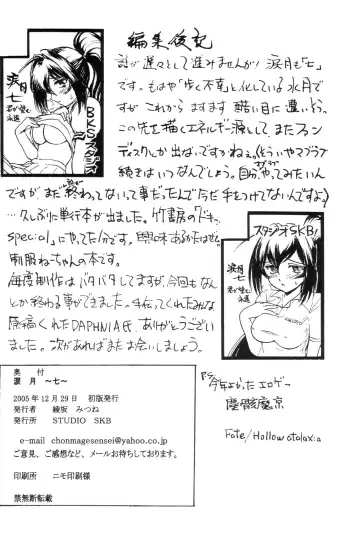 編集後記
話が遅々として進みませんが!涙月も「七」
です。もはや「歩く不幸」と化している水月で
すが これから ますます 酷い目に遭いそう。
この先を描くエネルギー源として、またファン
ディスクしか出ないですかねぇ。(そういやマブラヴ
続きはいつなんでしょう。自分、やってみたいん
ですが、まだ 終わってないって事だったんで今だ手をつけてないんですよ。)
…久しぶりに単行本が出ました。竹書房の「ドキッ
special」にやってた分です。興味あるかたはぜひ。
制服ねーちゃんの本です。
毎度制作はバタバタしてますが、今回もなん
とか終わる事ができました。手伝ってくれたみんな
原稿くれたDAPHNIA氏、ありがとうござい
ました。次があればまたお会いしましょう。
涙月
七
君が望む
永遠
BKSスタジオ
スタジオSKB!
涙月
七
君が望む
永遠
P.S.
今年よかったエロゲー
塵骸魔京
Fate/Hollow ataraxia
奥 付
涙 月 ~七~
2005年12月29日 初版発行
発行者 綾坂 みつね
発行所 STUDIO SKB
e-mail chonmagesensei@yahoo.co.jp
ご意見、ご感想など、メールお待ちしております。
印刷所 ニモ印刷様
禁無断転載